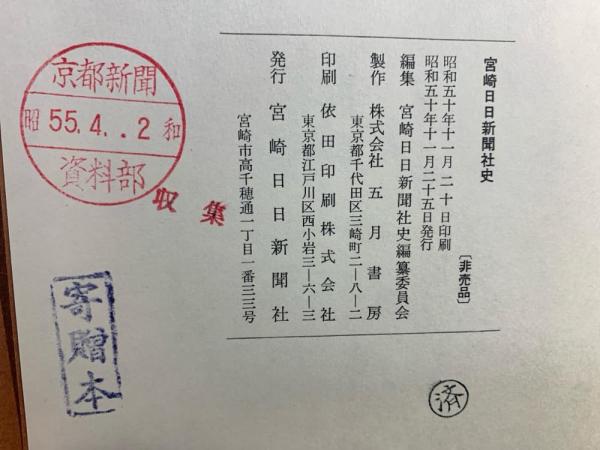 宮崎日日新聞社史
〔非売品〕
昭和五十年十一月二十日印刷
昭和五十年十一月二十五日発行
編集 宮崎日日新聞社史編纂委員会
製作 株式会社五月書房
東京都千代田区三崎町二―八―二
印刷 依田印刷株式会社
東京都江戸川区西小岩三―六―三
発行 宮崎日日新聞社
宮崎市高千穂通一丁目一番三三号
京都新聞
昭 55.4..2 和
資料部
収集
寄贈本
済